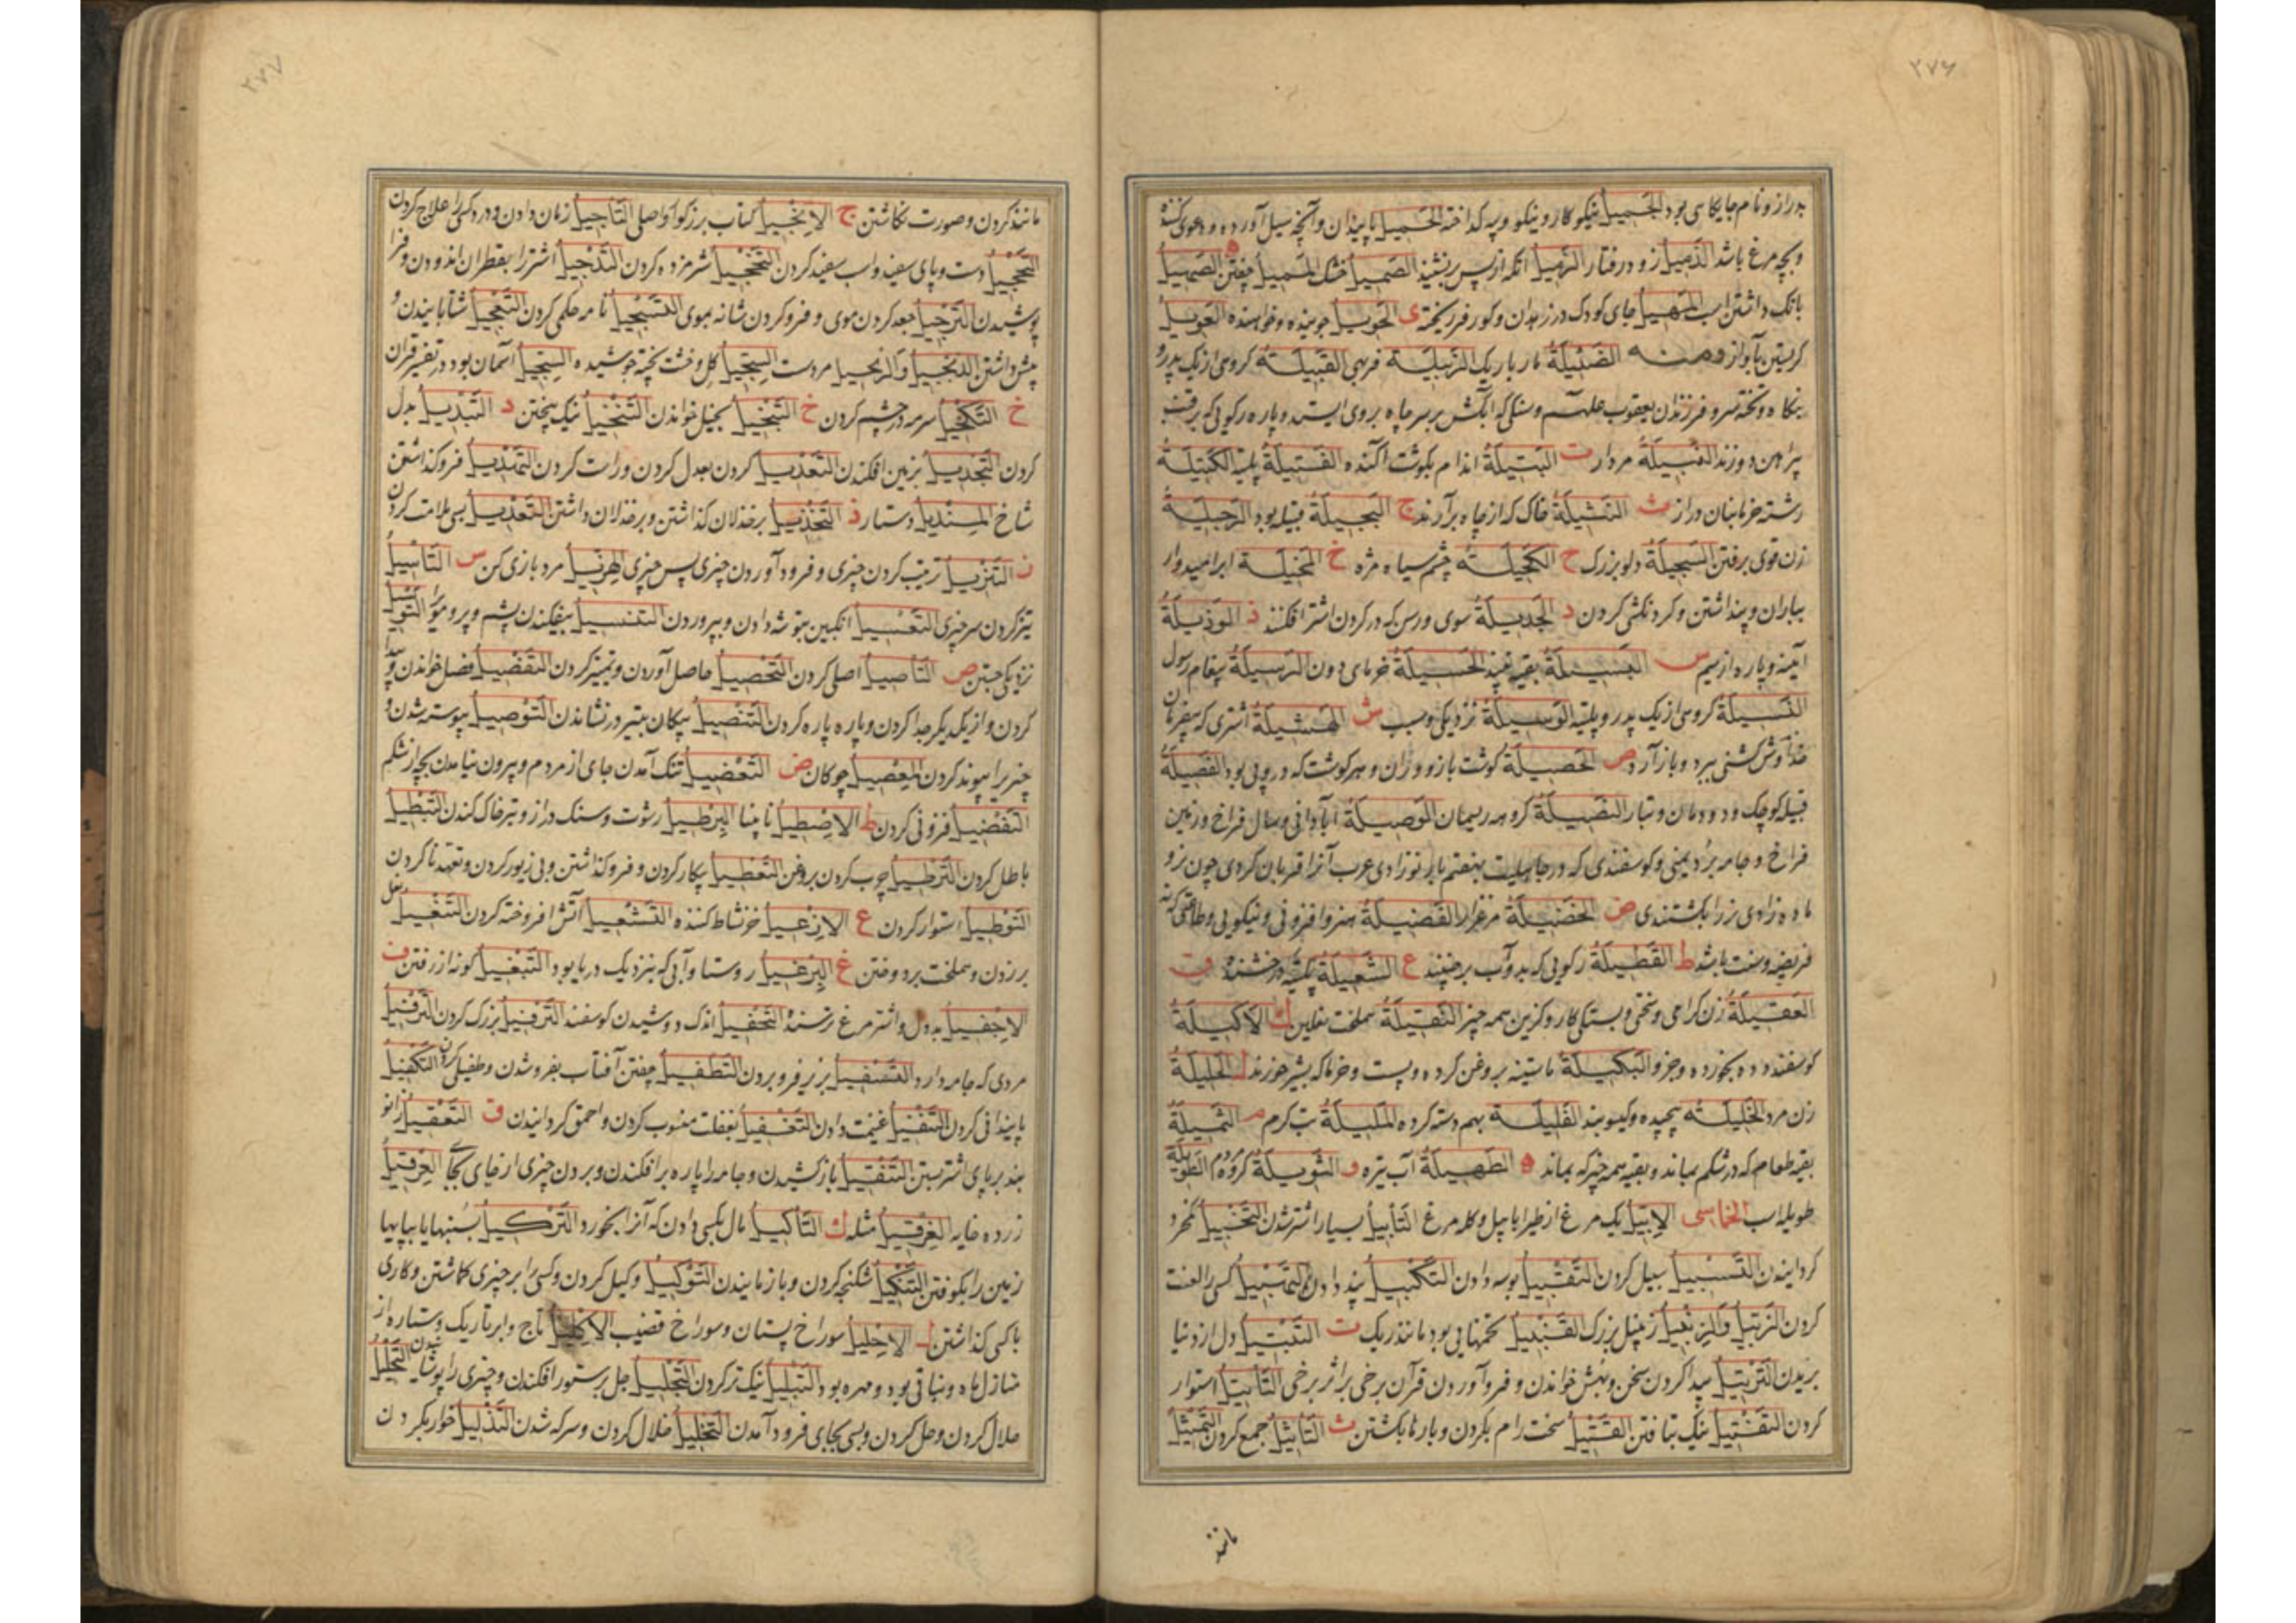 ۲۷۶
بدراز و نام جایکاسی بود الجَمیلُ نیکوکار و نیکو و پیه کداخته الحَمیلُ پایندان و آنچه سیل آورده و دعوی کننده
و بچه مرغ باشد الذَمیلُ زود رفتار الزَمیلُ انکه از پس برنشیند الصَمیلُ خشک الهَمیلُ خفتن ه الصَهیلُ
بانک داشتن اسب المَهیلُ جای کودک در زهدان و کور فرریخته ی الحَویلُ جوینده و خواهنده العَویلُ
کریستن بآواز ومنه الضَئیلَةُ مار باریک الزَبیلَة فربهی القَبیلَةُ کروهی از یک پدر و
بنکاه و تخته سر و فرزندان یعقوب علیهم و سنکی که آبکش بر سر چاه بروی ایستد و پاره رکویی که برقب
پیراهن دوزند النَبیلَةُ مردار ت البَتیلَةُ اندام بکوشت آکنده الفَتیلَةُ پلیته الکَتیلَةُ
رشته خرمابنان دراز ث النَثیلَةُ خاک که از چاه برآرند ج البَجیلَةُ قبیله بود الرَجیلَةُ
زن قوی برفتن السَجیلَةُ دلو بزرک ح الکَحیلَةُ چشم سیاه مژه خ المَخیلَة ابر امیدوار
بباران و پنداشتن و کردنکشی کردن د الجَدیلَةُ سوی و رسن که در کردن اشتر افکنند ذ الوَذیلَةُ
آیینه و پاره از سیم س البَسیلَةُ بقیه نبیذ الحَسیلَةُ خرمای دون الرَسیلَةُ پیغام رسول
النَسیلَةُ کروهی از یک پدر و پلیته الوَسیلَةُ نزدیکی و سبب ش الهَشیلَةُ اشتری که بیفرمان
خداوندش کسی ببرد و باز آرد ص الخَصیلَةُ کوشت بازو و ران و هر کوشت که در و پی بود الفَصیلَةُ
قبیله کوچک و دودمان و تبار النَصیلَةُ کروهه ریسمان الوَصیلَةُ آبادانی و سال فراخ و زمین
فراخ و جامه برد یمنی و کوسفندی که در جاهلیت بهفتم بار نوزادی عرب آنرا قربان کردی چون نر و
ماده زادی نر را بکشتندی ض الخَضیلَةُ مرغزار الفَضیلَةُ هنر و افزونی و نیکویی و طاعتی که نه
فریضه و سنت باشد ط القَطیلَةُ رکویی که بدو آب برچینند ع الشَعیلَةُ پلیته درخشنده ق
العَقیلَةُ زن کرامی و سختی و بستکی کار و کزین همه چیز النَقیلَةُ سملخت نعلین ك الاَکیلَةُ
کوسفند دده بخورده و جزو البَکیلَةُ ماستینه بروغن کرده و پست و خرما که بشیر خورند ل الحَلیلَةُ
زن مرد الخَلیلَةُ پیچیده و کیسوبند الفَلیلَة بهم دسته کرده المَلیلَةُ تب کرم م الثَمیلَةُ
بقیه طعام که در شکم بماند و بقیه همه چیز که بماند ه الطَهیلَةُ آب تیره و الثَویلَةُ کروه مردم الطَویلَةُ
طویله اسب الخماسی الاِبّیلُ یک مرغ از طیر ابابیل و کله مرغ التَأبیلُ بسیار اشتر شدن التَخبیلُ کمخرد
کردانیدن التَسبیلُ سبیل کردن التَقبیلُ بوسه دادن التَکبیلُ بند دادن التَهبیلُ کسی را لعنت
کردن الزَنبیلُ والزِنبیلُ زنبیل بزرک القَنبیلُ تخمهایی بود مانند ریک ت التَبتیلُ دل از دنیا
بریدن التَرتیلُ پیدا کردن سخن و بهش خواندن و فروآوردن قرآن برخی بر اثر برخی التَأتیلُ استوار
کردن التَفتیلُ نیک بتافتن التَقتیلُ سخت رام بکردن و بارها بکشتن ث التَأثیلُ جمع کردن التَمثیلُ
مانند
۲۷۷
مانند کردن و صورت نکاشتن ج الاِنجیلُ کتاب بزرکوار اصلی التَأجیلُ زمان دادن و درد کسی را علاج کردن
التَحجیلُ دست و پای سفید و اسب سفید کردن التَخجیلُ شرمزده کردن التَدجیلُ اشتر را بقطران اندودن و فرا
پوشیدن التَرجیلُ جعد کردن موی و فرو کردن شانه بموی التَسجیلُ نامه حکمی کردن التَعجیلُ شتابانیدن و
پیش داشتن الدنجیلُ والزنجیلُ مرد سست السِجّیلُ کل و خشت پخته جوشیده السِجّیلُ آسمان بود در تفسیر قرآن
ح التَکحیلُ سرمه در چشم کردن خ التَبخیلُ بخیل خواندن التَنخیلُ نیک بیختن د التَبدیلُ بدل
کردن التَجدیلُ بزمین افکندن التَعدیلُ کردن بعدل کردن و راست کردن التَهدیلُ فروکذاشتن
شاخ المِندیلُ دستار ذ التَخذیلُ بر خذلان کذاشتن و بر خذلان داشتن التَعذیلُ بسی ملامت کردن
ز التَنزیلُ ترتیب کردن چیزی و فرود آوردن چیزی پس چیزی الهِزیلُ مرد بازی کن س التَأسیلُ
تیز کردن سر چیزی التَعسیلُ انکبین بتوشه دادن و بپروردن التَنسیلُ بیفکندن پشم و پر و موی را التَوسیلُ
نزدیکی جستن ص التَأصیلُ اصلی کردن التَحصیلُ حاصل آوردن و تمییز کردن التَفصیلُ فصل خواندن و پیدا
کردن و از یکدیکر جدا کردن و پاره پاره کردن التَنصیلُ پیکان بتیر در نشاندن التَوصیلُ پیوسته شدن و
چیزیرا پیوند کردن العِصیلُ چوکان ض التَعضیلُ تنک آمدن جای از مردم و بیرون نیامدن بچه از شکم
التَفضیلُ فزونی کردن ط الاِصطیلُ نابینا البِرطیلُ رشوت و سنک دراز و تبر خاک کندن التَبطیلُ
باطل کردن التَرطیلُ چوب کردن بروغن التَعطیلُ بیکار کردن و فروکذاشتن و بی زیور کردن و تعهد ناکردن
التَوطیلُ استوار کردن ع الاِزعیلُ خر نشاط کننده التَشعیلُ آتش افروخته کردن التَنعیلُ نعل
بر زدن و سملخت بر دوختن غ البِرغیلُ روستا و آبی که بنزدیک دریا بود التَبغیلُ کونه از رفتن ف
الاِجفیلُ بددل و اشترمرغ ترسنده التَحفیلُ اندک دوشیدن کوسفند التَرفیلُ بزرک کردن التَرفیلُ
مردی که جامه دارد التَسفیلُ بزیر فرو بردن التَطفیلُ خفتن آفتاب بفرو شدن و طفیلی کردن التَکفیلُ
پایندانی کردن التَنفیلُ غنیمت دادن التَغفیلُ بغفلت منسوب کردن و احمق کردانیدن ق التَعقیلُ زانو
بند بر پای اشتر بستن التَنقیلُ باز کشیدن و جامه را پاره برافکندن و بردن چیزی از جای بجایی العِرقیلُ
زرده خایه الغِرقیلُ مثله ك التَأکیلُ مال بکسی دادن که آنرا بخورد التَرکیلُ بسنبهای پایها
زمین را بکوفتن التَنکیلُ شکنجه کردن و باز مانیدن التَوکیلُ وکیل کردن و کسی را بر چیزی کماشتن و کاری
با کسی کذاشتن ل الاِحلیلُ سوراخ پستان و سوراخ قضیب الاِکلیلُ تاج و ابر تاریک و ستاره از
منازل ماه و نباتی بود و مهره بود التَبلیلُ نیک تر کردن التَجلیلُ جل بر ستور افکندن و چیزی را پوشانیدن التَحلیلُ
حلال کردن و حل کردن و بسی بجای فرود آمدن التَخلیلُ خلال کردن و سرکه شدن التَذلیلُ خوار بکردن